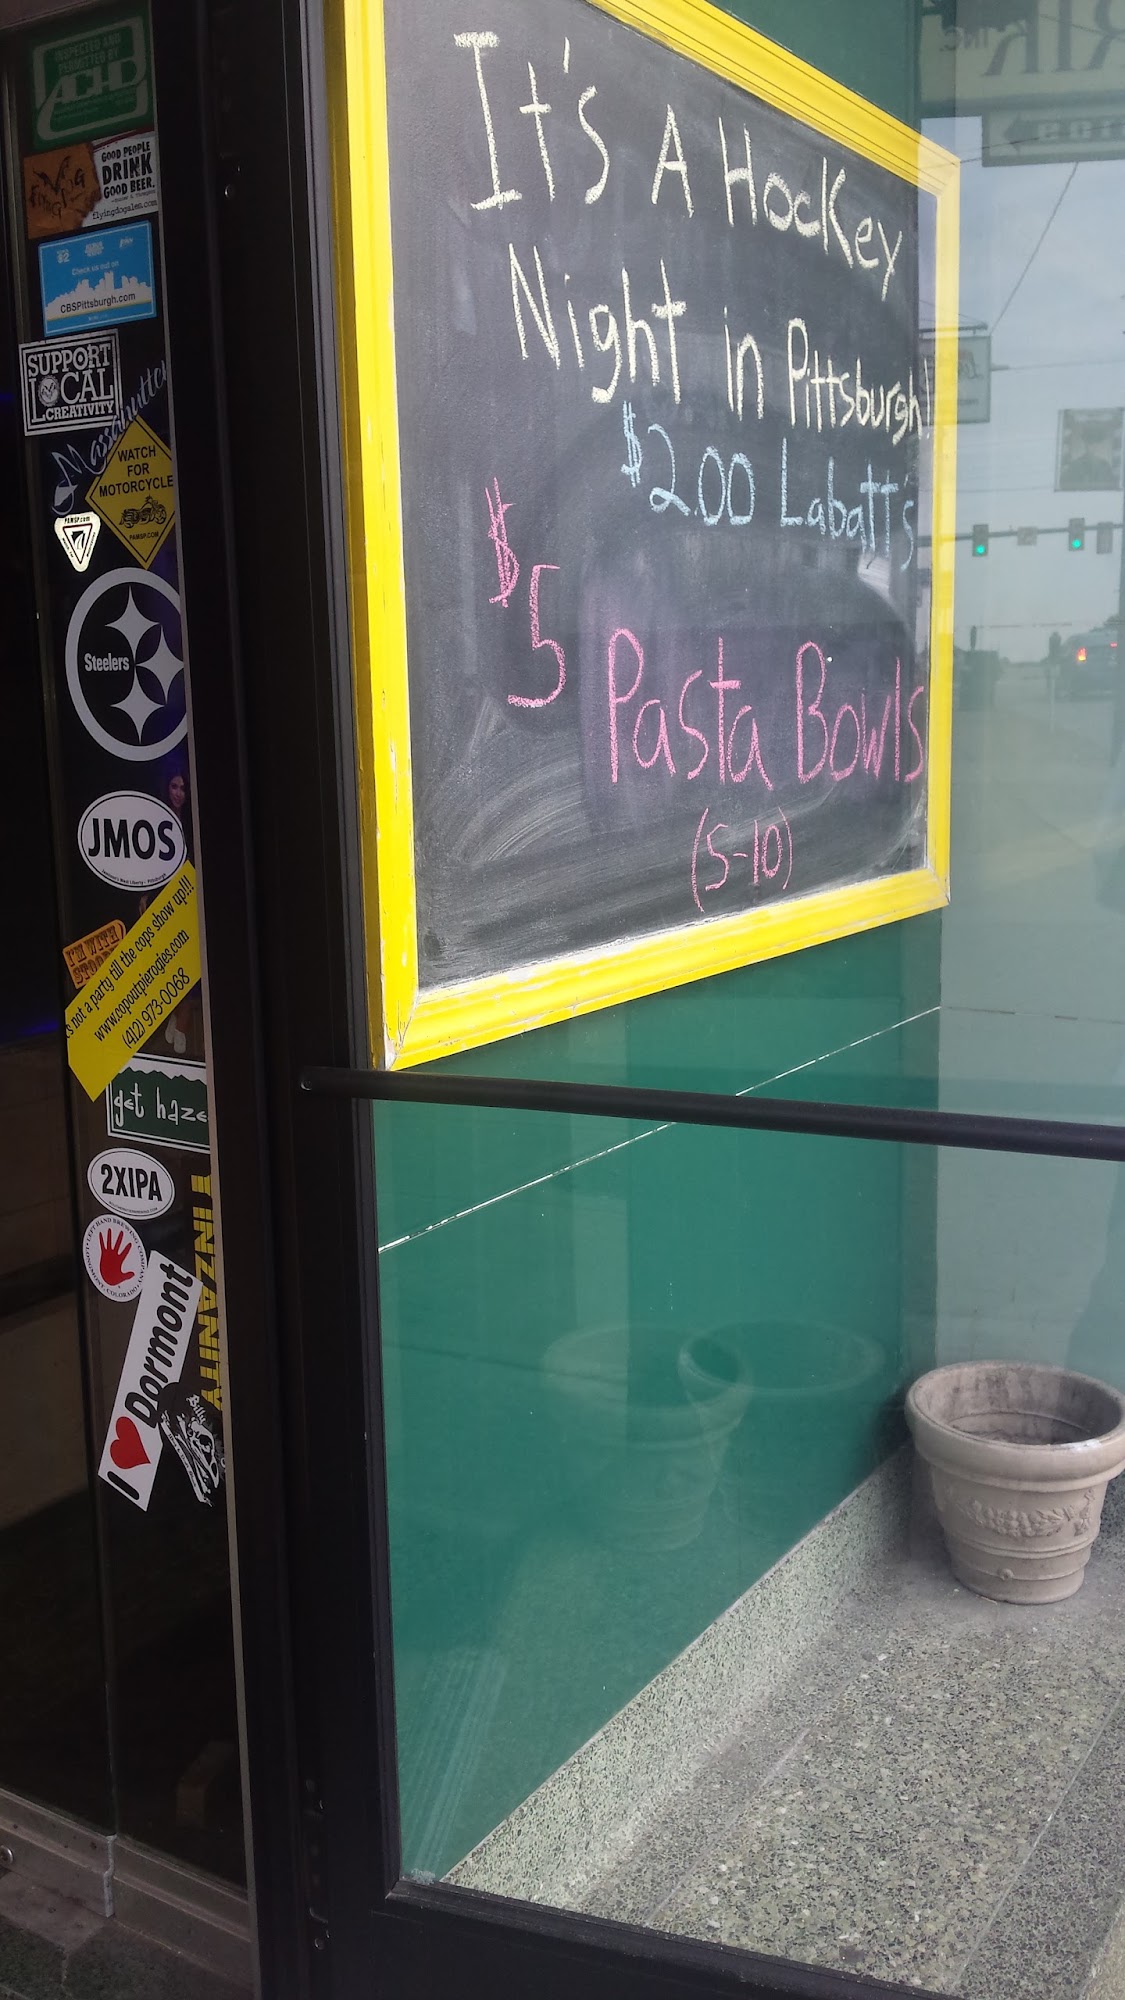 It's A Hockey
Night in Pittsburgh!
$2.00 Labatt's
$5 Pasta Bowls
(5-10)
INSPECTED AND
PERMITTED BY
ACHD
GOOD PEOPLE
DRINK
GOOD BEER.
flyingdogales.com
Check us out on
CBSPittsburgh.com
SUPPORT
LOCAL
CREATIVITY
WATCH
FOR
MOTORCYCLE
PAMSP.COM
PAMSP.com
Steelers
JMOS
I'M WITH
's not a party till the cops show up!!!
www.copoutpierogies.com
(412) 973-0068
get haze
2XIPA
LEFT HAND BREWING COMPANY
LONGMONT, COLORADO
YINZANITY
I Dormont